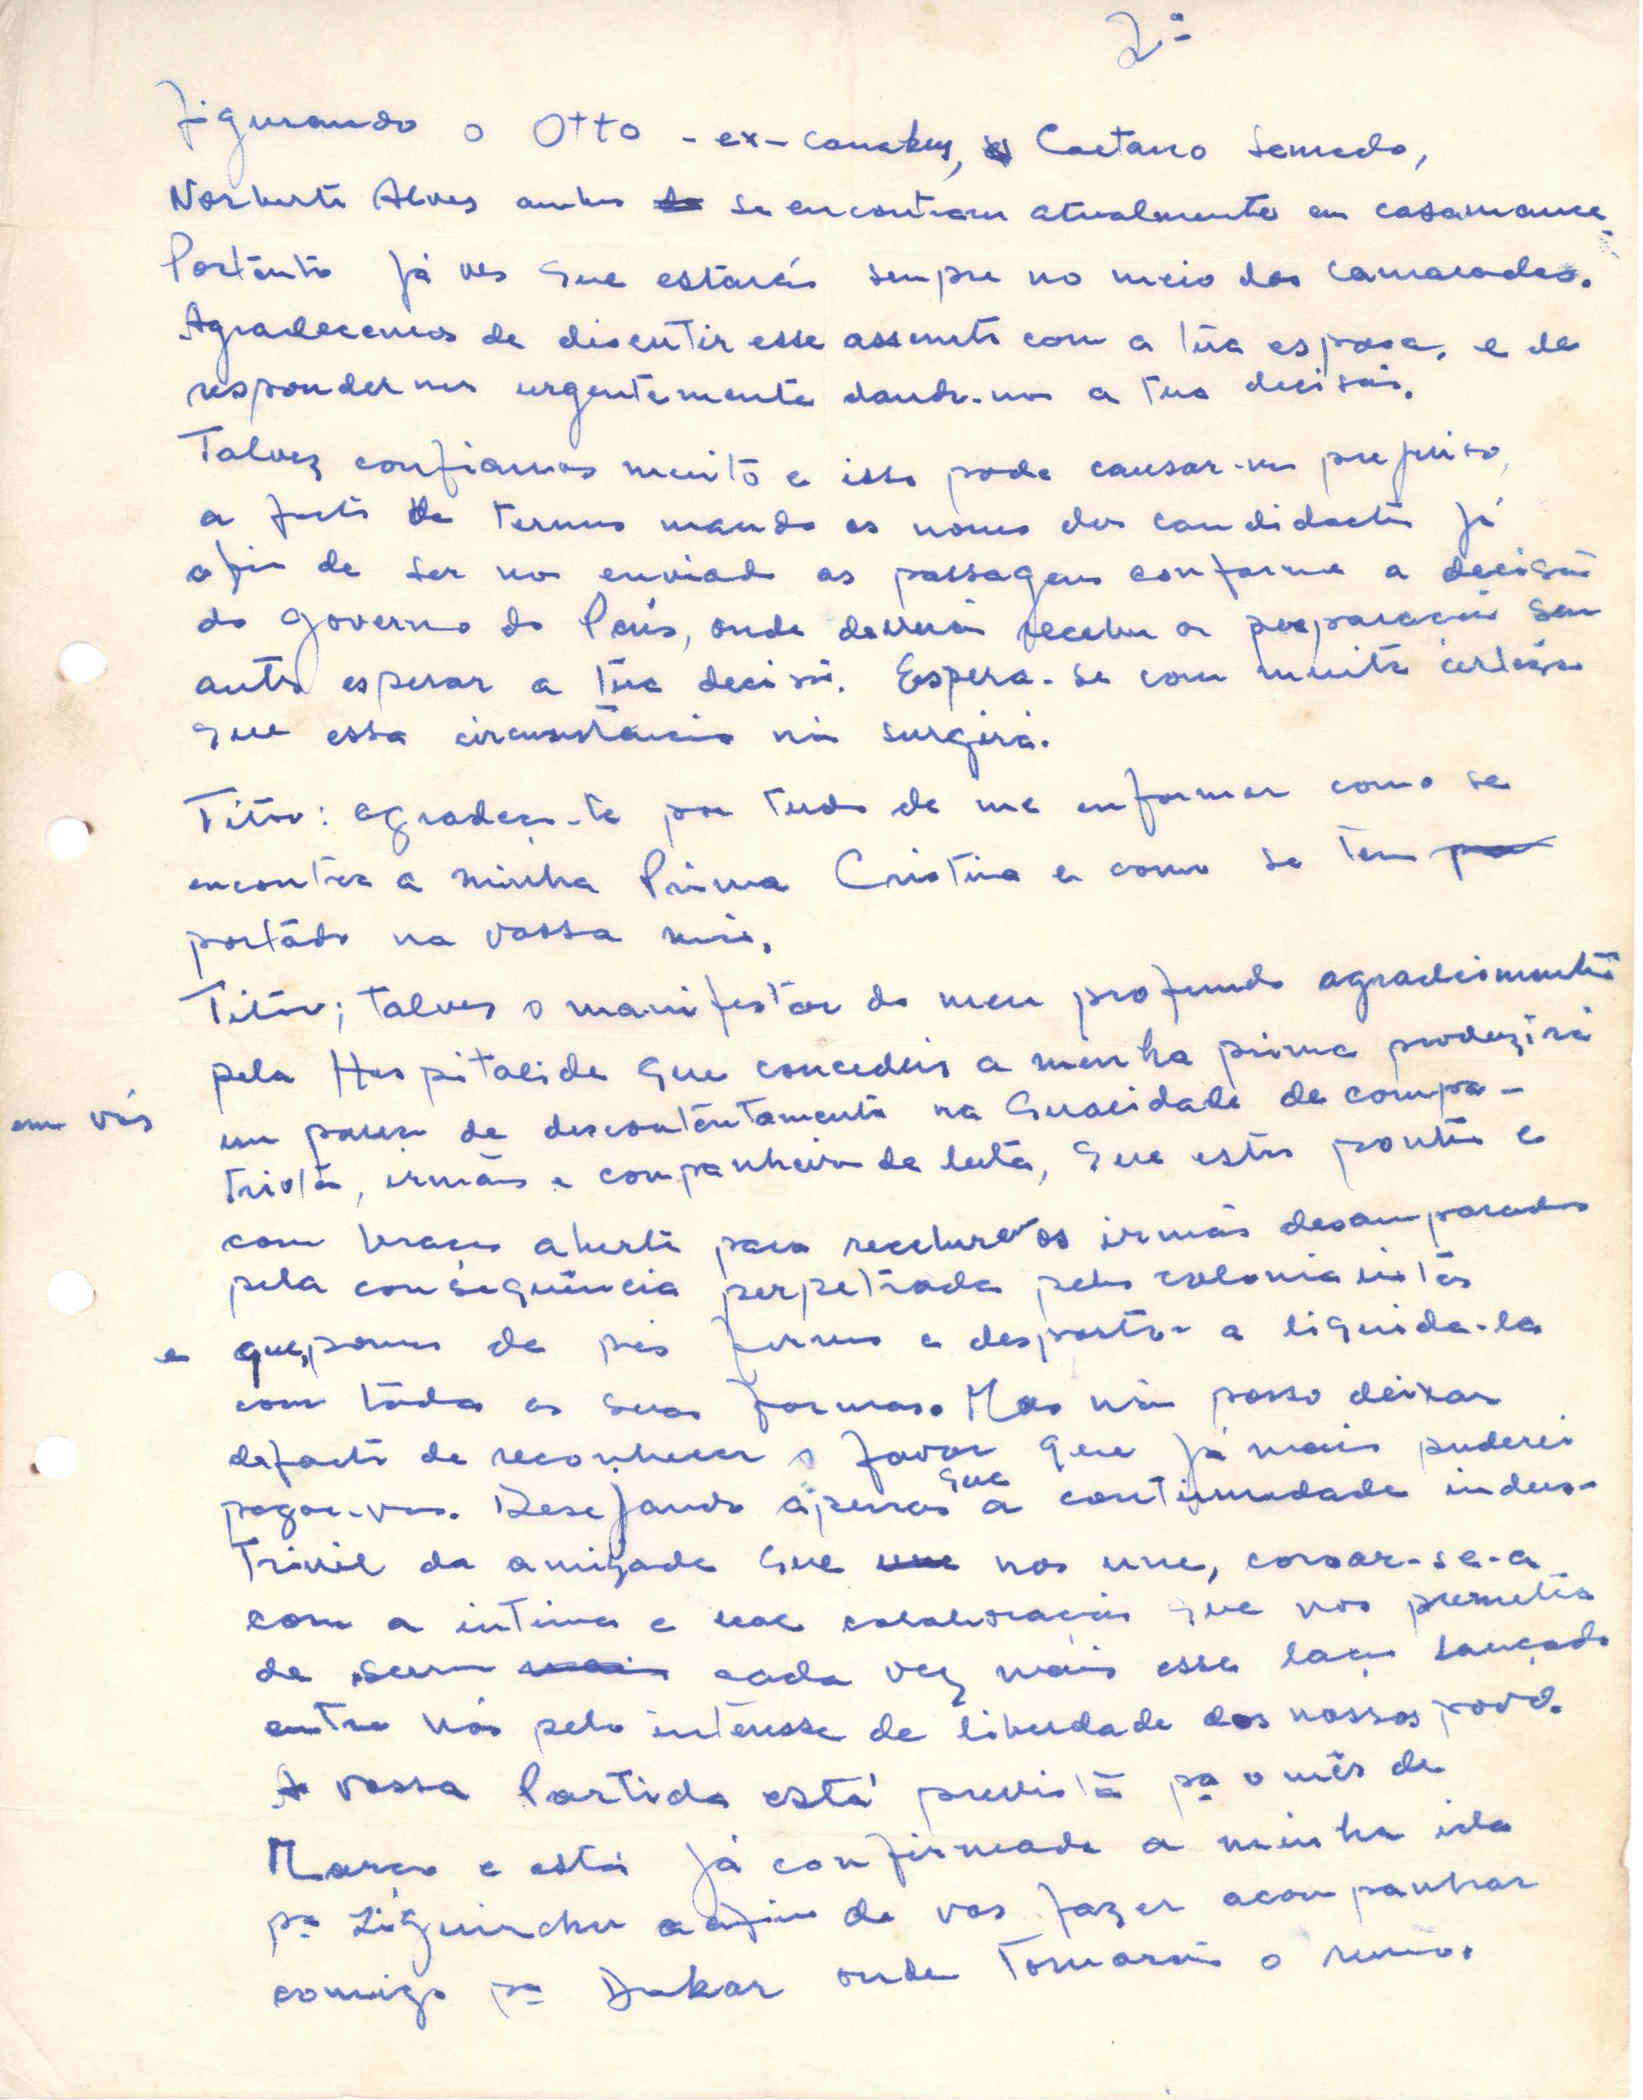 2.º
figurando o Otto - ex-    , Caetano Semedo,
Norberto Alves ambos se encontram atualmente em casamance.
Portanto já ves que estarás sempre no meio dos camaradas.
Agradecemos de discutir esse assunto com a tua esposa, e de
responder nos urgentemente dando-nos a tua decisão.
Talvez confiamos muito e isso pode causar-nos prejuiso,
o facto de termos mando os nomes dos candidactos já
afim de ser nos enviado as passagens conforme a decisão
do governo do País, onde deverão receber a preparação sem
antes esperar a tua decisão. Espera-se com muita certeza
que essa circunstância não surgirá.
Titov: agradeço-te por tudo de me enformar como se
encontra a minha Prima Cristina e como se tem
portado na vossa     .
Titov; talves o manifestar do meu profundo agradecimento
pela Hospitalide que concedeis a menha prima produzirá
em vós um pouco de descontentamento na qualidade de compa-
triotas, irmãos e companheiros de luta, que estão prontos e
com braços aberto para receberem os irmãos desamparados
pela consequência perpetrada pelos colonialistas
e que, pomos de pés firmes e despostos a liquida-la
com todas as suas formas. Mas não posso deixar
defacto de reconhecer o favor que já mais puderei
pagar-vos. Desejando apenas que a continuidade indes-
trivil da amizade que nos une, coroar-se-a
com a intima e leal colaboração que nos premetia
de     cada vez mais esse laço lançado
entre nós pelo interesse de liberdade dos nossos povo.
A vossa Partida está prevista pª o mês de
Março e está já confirmada a minha ida
pª Ziguinchor a afim de vos fazer acompanhar
comigo pª Dakar onde tomarão o rumo.